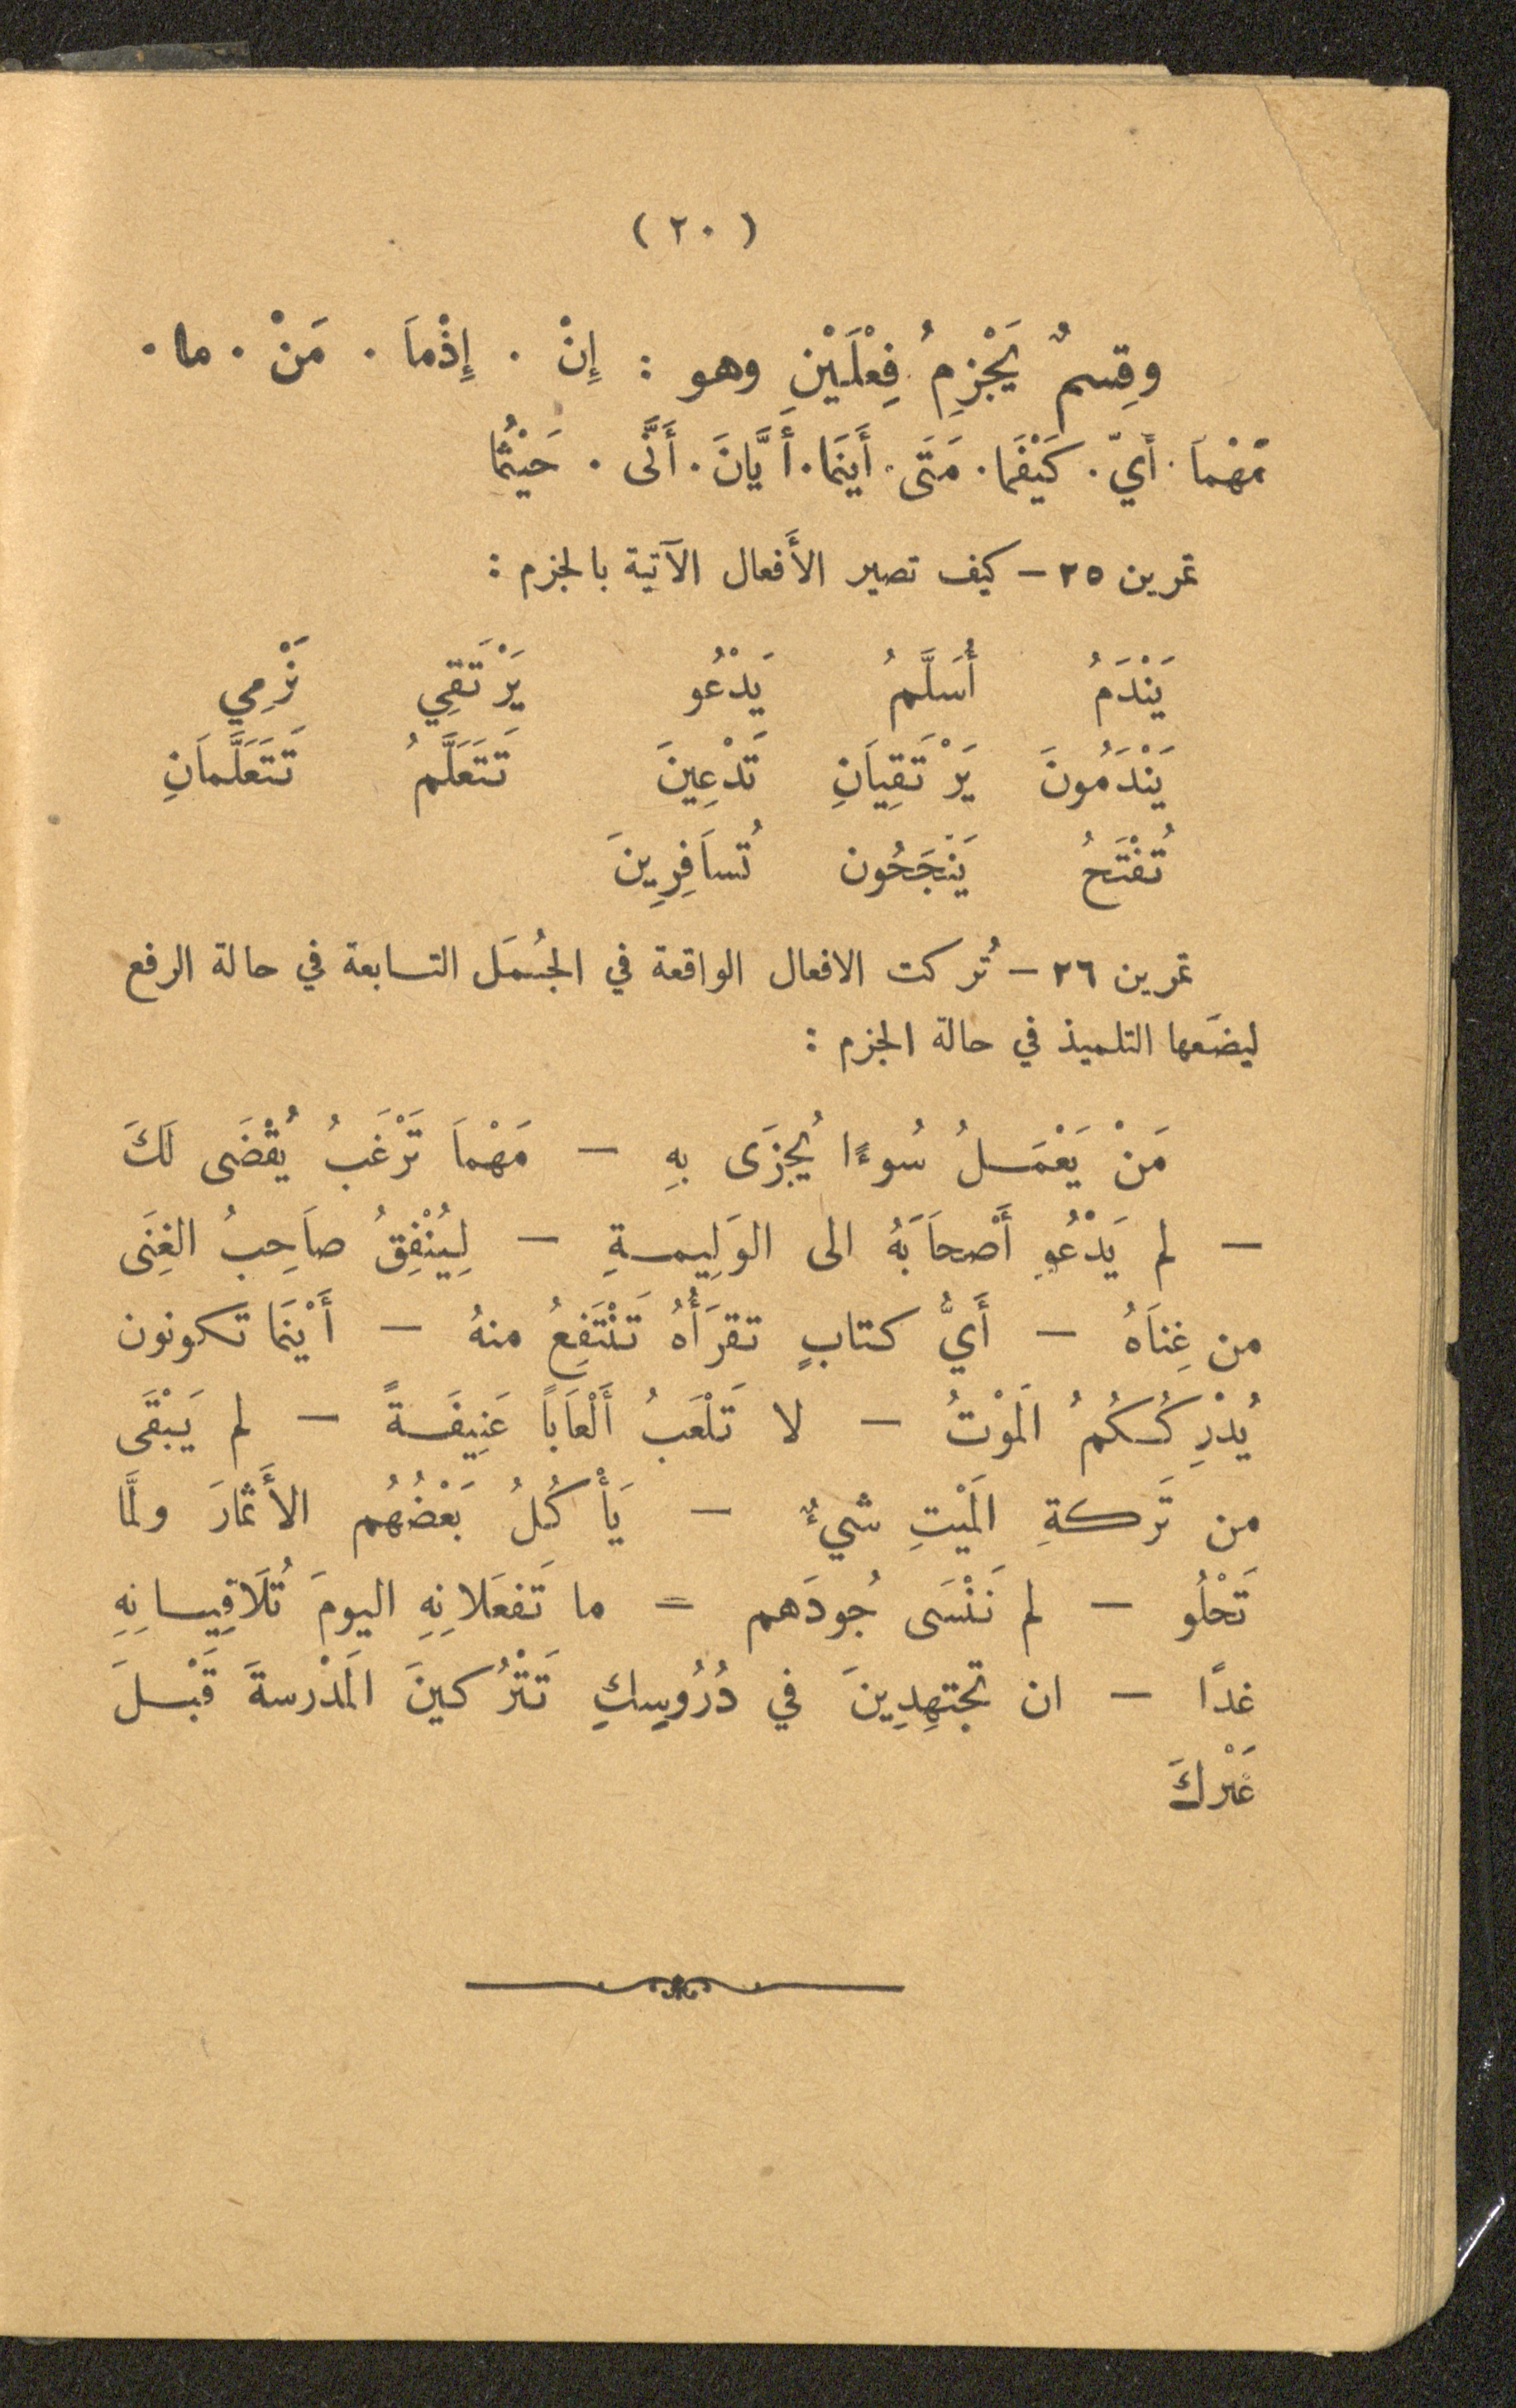 ( ٢٠ )
وقِسمٌ يَجْزِمُ فِعْلَيْنِ وهو : إِنْ . إِذْمَا . مَنْ . ما .
مَهْمَا . أَيّ . كَيْفَمَا . مَتَى . أَينَمَا . أَيَّانَ . أَنَّى . حَيْثُما
تمرين ٢٥ – كيف تصير الأَفعال الآتية بالجزم :
يَنْدَمُ أُسَلَّمُ يَدْعُو يَرْتَقِي نَرْمِي
يَنْدَمُونَ يَرْتَقِيَانِ تَدْعِينَ تَتَعَلَّمُ تَتَعَلَّمَانِ
تُفْتَحُ يَنْجَحُون تُسَافِرِينَ
تمرين ٢٦ – تُركت الافعال الواقعة في الجُمَل التابعة في حالة الرفع
ليضَعها التلميذ في حالة الجزم :
مَنْ يَعْمَلُ سُوءًا يُجزَى بهِ – مَهْمَا تَرْغَبُ يُقْضَى لَكَ
– لم يَدْعُو أَصْحَابَهُ الى الوَلِيمةِ – لِيُنْفِقُ صاَحِبُ الغِنَى
من غِنَاهُ – أَيُّ كتابٍ تقرَأُهُ تَنْتَفِعُ منهُ – أَيْنَمَا تكونون
يُدْرِكُكُمُ المَوْتُ – لا تَلْعَبُ أَلْعَابًا عَنِيفَةً – لم يَبْقَى
من تَركةِ المَيْتِ شيءٌ – يَأْكُلُ بَعْضُهُم الأَثمَارَ ولَمَّا
تَحْلُو – لم نَنْسَى جُودَهم = ما تَفعَلانِهِ اليومَ تُلَاقِيانِهِ
غدًا – ان تجتهِدِينَ في دُرُوسِكِ تَتْرُكينَ المَدْرسةَ قَبْلَ
غَيْرِكَ